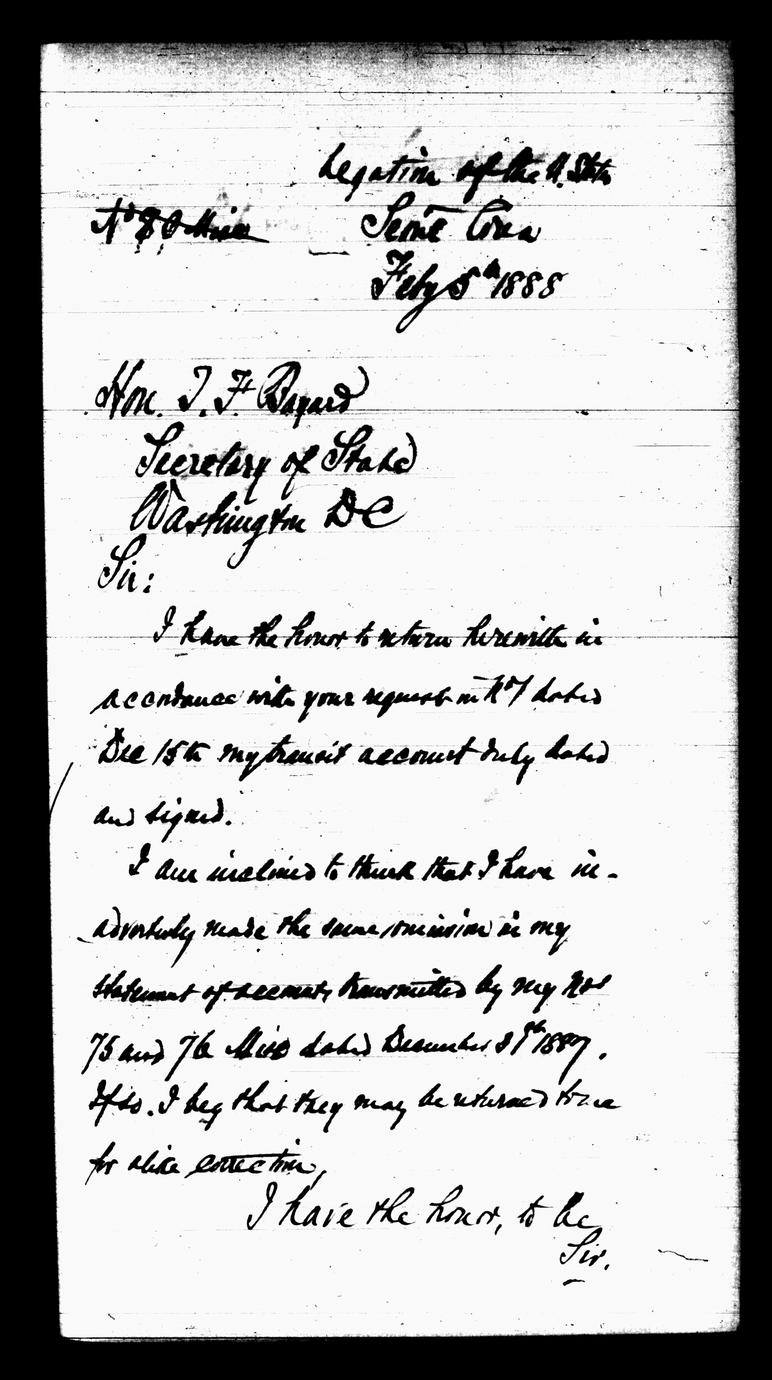 Legation of the U. States
No 80 Misc
Seoul Corea
Feby 5th 1888
Hon. T. F. Bayard
Secretary of State
Washington DC
Sir:
I have the honor to return herewith in
accordance with your request in No 7 dated
Dec 15th my transit account duly dated
and signed.
I am inclined to think that I have in-
advertently made the same omission in my
statement of accounts transmitted by my Nos
75 and 76 Misc dated December 1887.
If so. I beg that they may be returned to me
for alike correction,
I have the honor, to be
Sir.